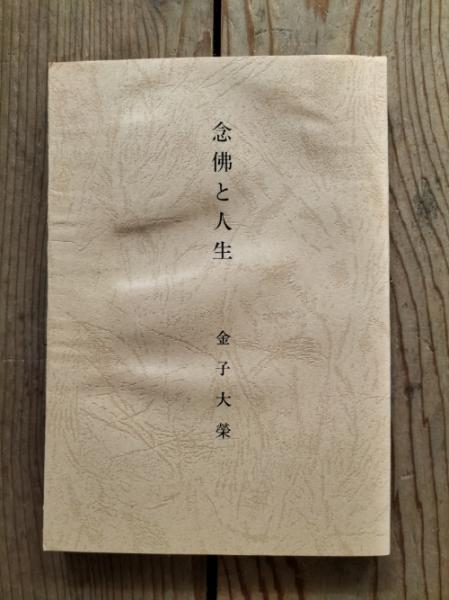 念佛と人生
金子大榮